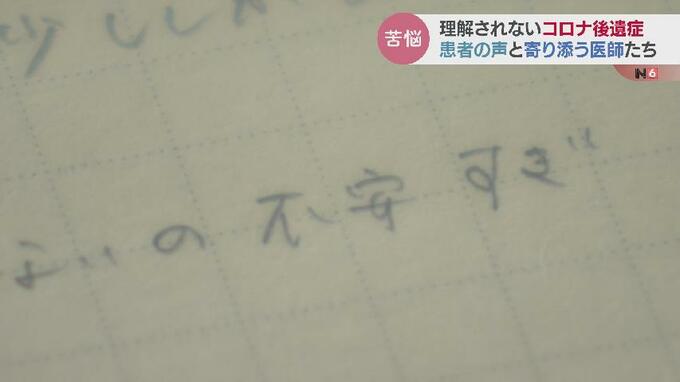 苦悩
理解されないコロナ後遺症
患者の声と寄り添う医師たち
N 6
少し
いの不安すぎ